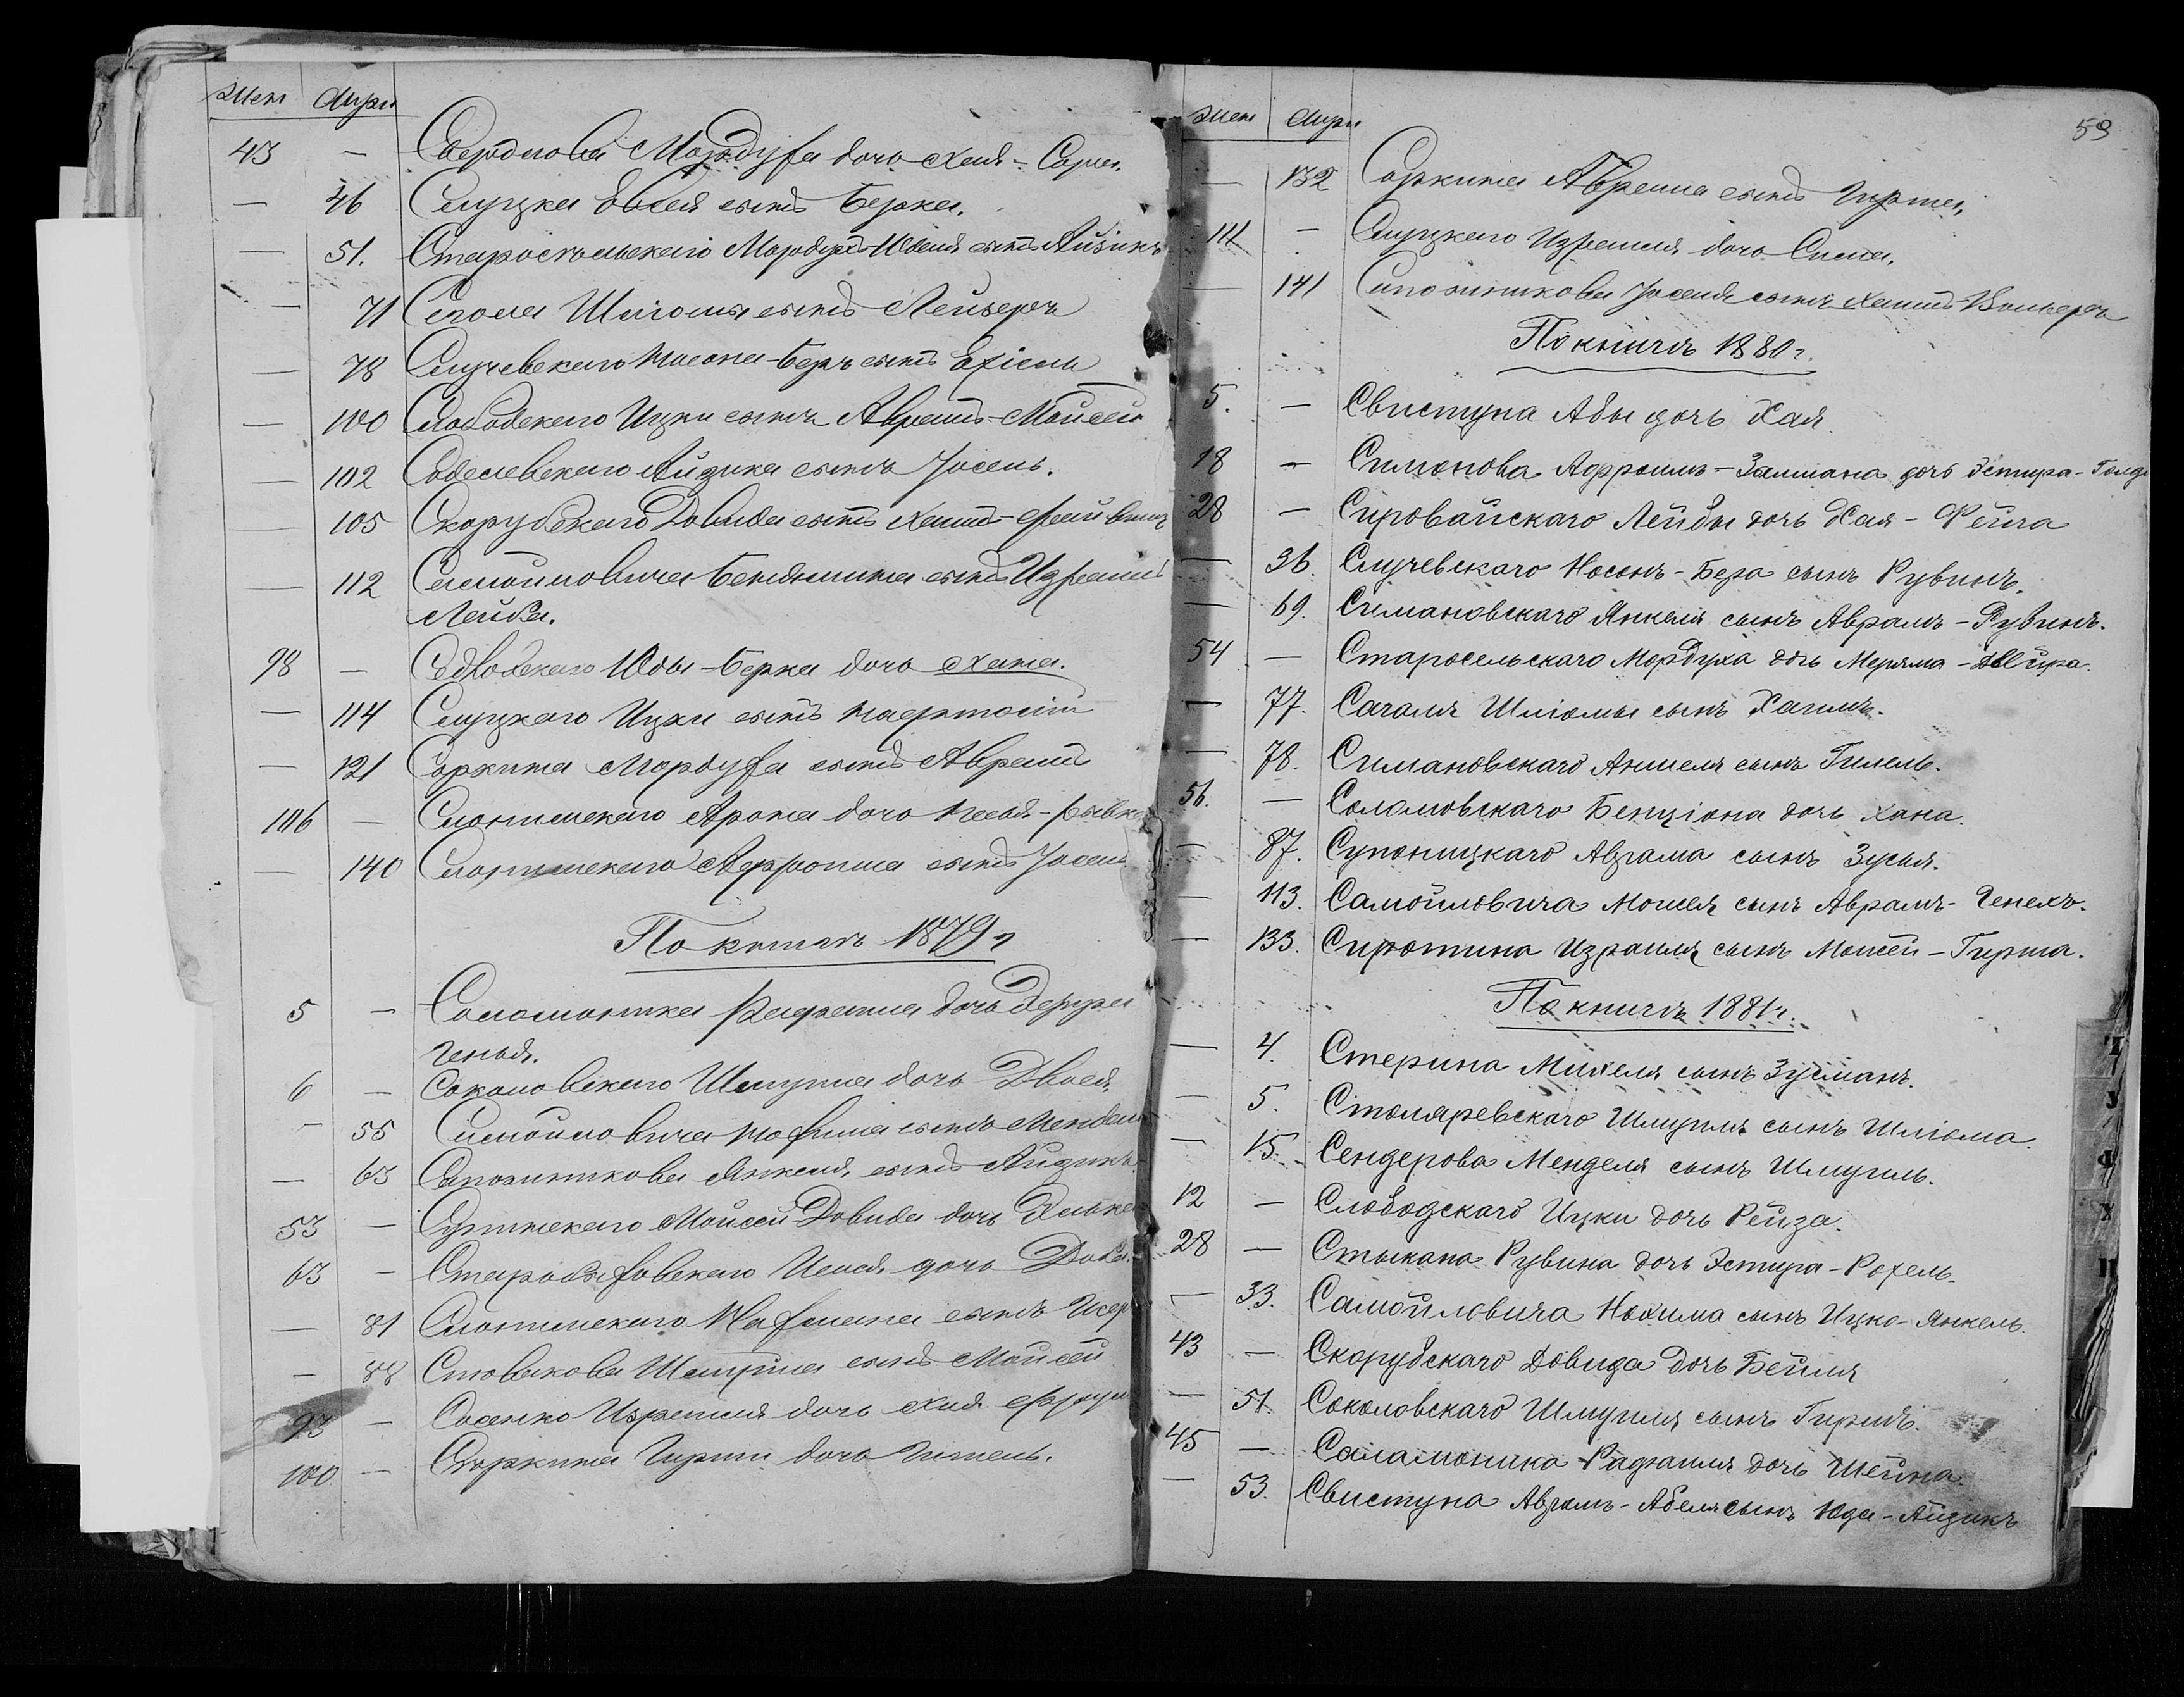 Жен Мужи
43 — Свердлова Мордуха дочь Хая-Сора.
— 46 Слуцка Евсея сынъ Берка.
— 51. Старосельскаго Мордухъ-Иселя сынъ Айзикъ
— 71 Шліомы сынъ Лейзеръ
— 78 Случевскаго Носона-Беръ сынъ Ехіель
— 100 Слободскаго Ицки сынъ Абрамъ-Мойсей
— 102 Айзика сынъ Іосель.
— 105 Скорубскаго Довида сынъ Хаимъ-Файвишъ
— 112 Самойловича Беніомина сынъ Израиль
Лейба.
98 — Юды-Берка дочь Хана.
— 114 Слуцкаго Ицки сынъ Нафтоли
— 121 Соркина Мордуха сынъ Абрамъ
106 — Слонимскаго Арона дочь Песя-Рывка
— 140 Слонимскаго Афроима сынъ Іосель
По книгѣ 1879 г
5 — Соломоника Рафаила дочь
Генья.
6 — Соколовскаго Шмуила дочь Двося.
— 55 Самойловича Нохима сынъ Мендель
— 63 Сапожникова Янкеля сынъ Айзикъ
53 — Мойсей Довида дочь
63 — дочь Доба.
— 81 Слонимскаго Нахмана сынъ Исеръ
— 88 Шмуила сынъ Мойсей
93 — Израиля дочь Хая
100 — Соркина Гирши дочь Гитель.
59
Жен Мужи
— 132 Соркина Абрама сынъ Гирша.
111 — Слуцкаго Израиля дочь Сима.
— 141 Сапожникова Іоселя сынъ Хаимъ-Вольфъ
По книгѣ 1880 г.
5. — Свистуна Абы дочь Хая.
18 — Симонова Афроимъ-Залмана дочь Эстира-Голда
28 — Сировайскаго Лейбы дочь Хая-Фейга
— 36. Случевскаго Носонъ-Бера сынъ Рувинъ.
— 69. Симановскаго Янкеля сынъ Абрамъ-Рувинъ.
54 — Старосельскаго Мордуха дочь Меряма-Двейра.
— 77. Сагаля Шліомы сынъ Хаимъ.
— 78. Симановскаго Аншеля сынъ Гилель.
56. — Соломовскаго Бенціона дочь Хана.
— 87. Супоницкаго Абрама сынъ Зусья.
— 113. Самойловича Мошея сынъ Абрамъ-Генехъ.
— 133. Сиротина Израиля сынъ Моисей-Гирша.
По книгѣ 1881 г.
— 4. Стерина Михеля сынъ Зусманъ.
— 5. Столяревскаго Шмуиля сынъ Шліома.
— 15. Сендерова Менделя сынъ Шмуиль.
12 — Слободскаго Ицки дочь Рейза.
28 — Стыкана Рувина дочь Эстира-Рохель.
— 33. Самойловича Нохима сынъ Ицко-Янкель.
43 — Скорубскаго Довида дочь Бейля
— 51. Соколовскаго Шмуиля сынъ Гиршъ.
45 — Саламоника Рафаиля дочь Шейна
— 53. Свистуна Абрамъ-Абеля сынъ Юда-Айзикъ